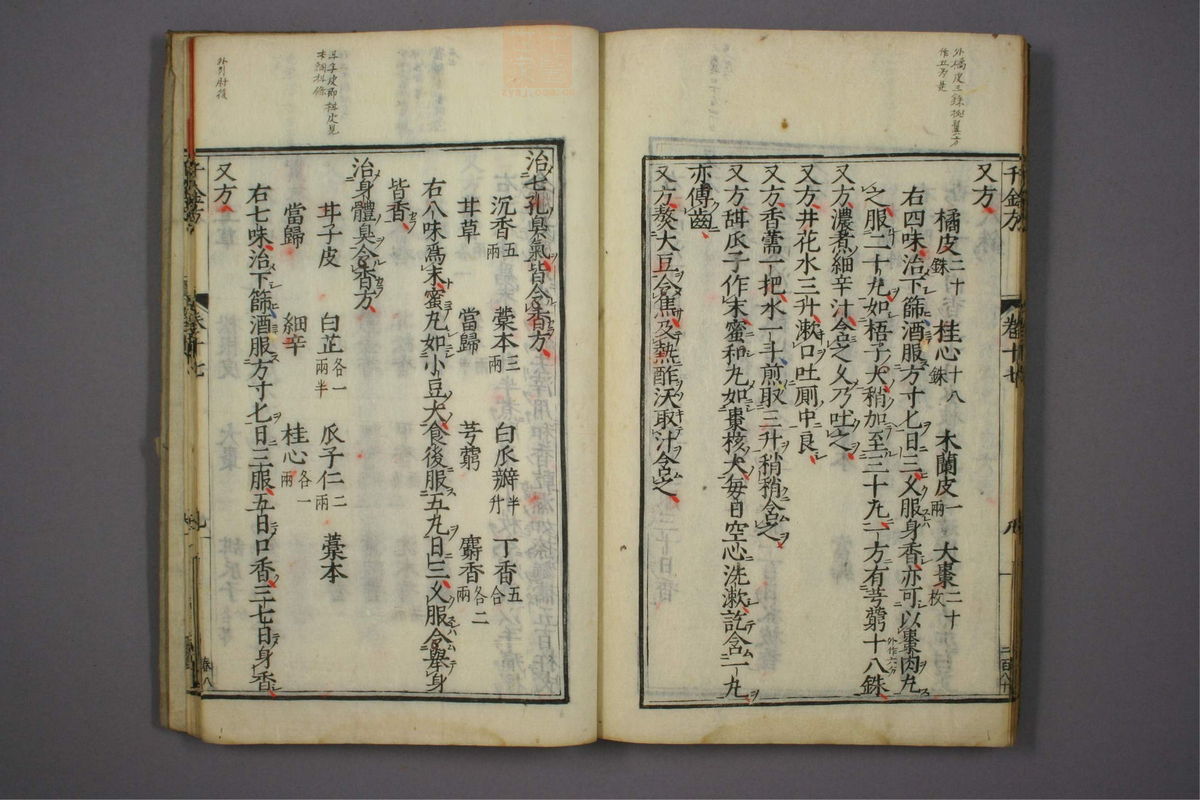 千金方
卷十七
又方
橘皮二十銖 桂心十八銖 木蘭皮一兩 大棗二十枚
右四味治下篩酒服方寸匕日三又服身香亦可以棗肉丸
之服二十丸如梧子大稍加至三十丸一方有芎藭十八銖
外作六分
又方濃煮細辛汁含之久乃吐之
又方井花水三升漱口吐廁中良
又方香薷一把水一斗煎取三升稍稍含之
又方甜瓜子作末蜜和丸如棗核大每旦空心洗漱訖含一丸
亦傅齒
又方熬大豆令焦及熱酢沃取汁含之
治七孔臭氣皆令香方
沉香五兩 藁本三兩 白瓜瓣半升 丁香五合
甘草 當歸 芎藭 麝香各二兩
右八味爲末蜜丸如小豆大食後服五丸日三久服令舉身
皆香
治身體臭令香方
甘子皮 白芷各一兩半 瓜子仁二兩 藁本
當歸 細辛 桂心各一兩
右七味治下篩酒服方寸匕日三服五日口香三七日身香
又方
千金方
卷十七